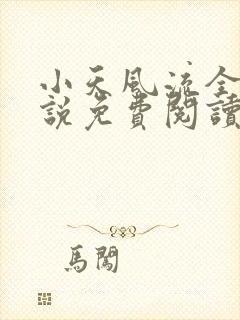 小天風流全
說免費閱讀
馬闖